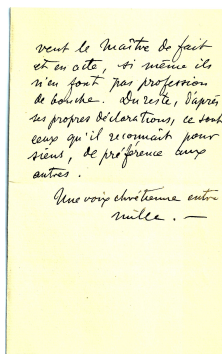 vent le Maître de fait
et en acte, si même ils
n'en font pas profession
de bouche. Du reste, d'après
ses propres déclarations, ce sont
ceux qu'il reconnaît pour
siens, de préférence aux
autres.
Une voix chrétienne entre
mille. —